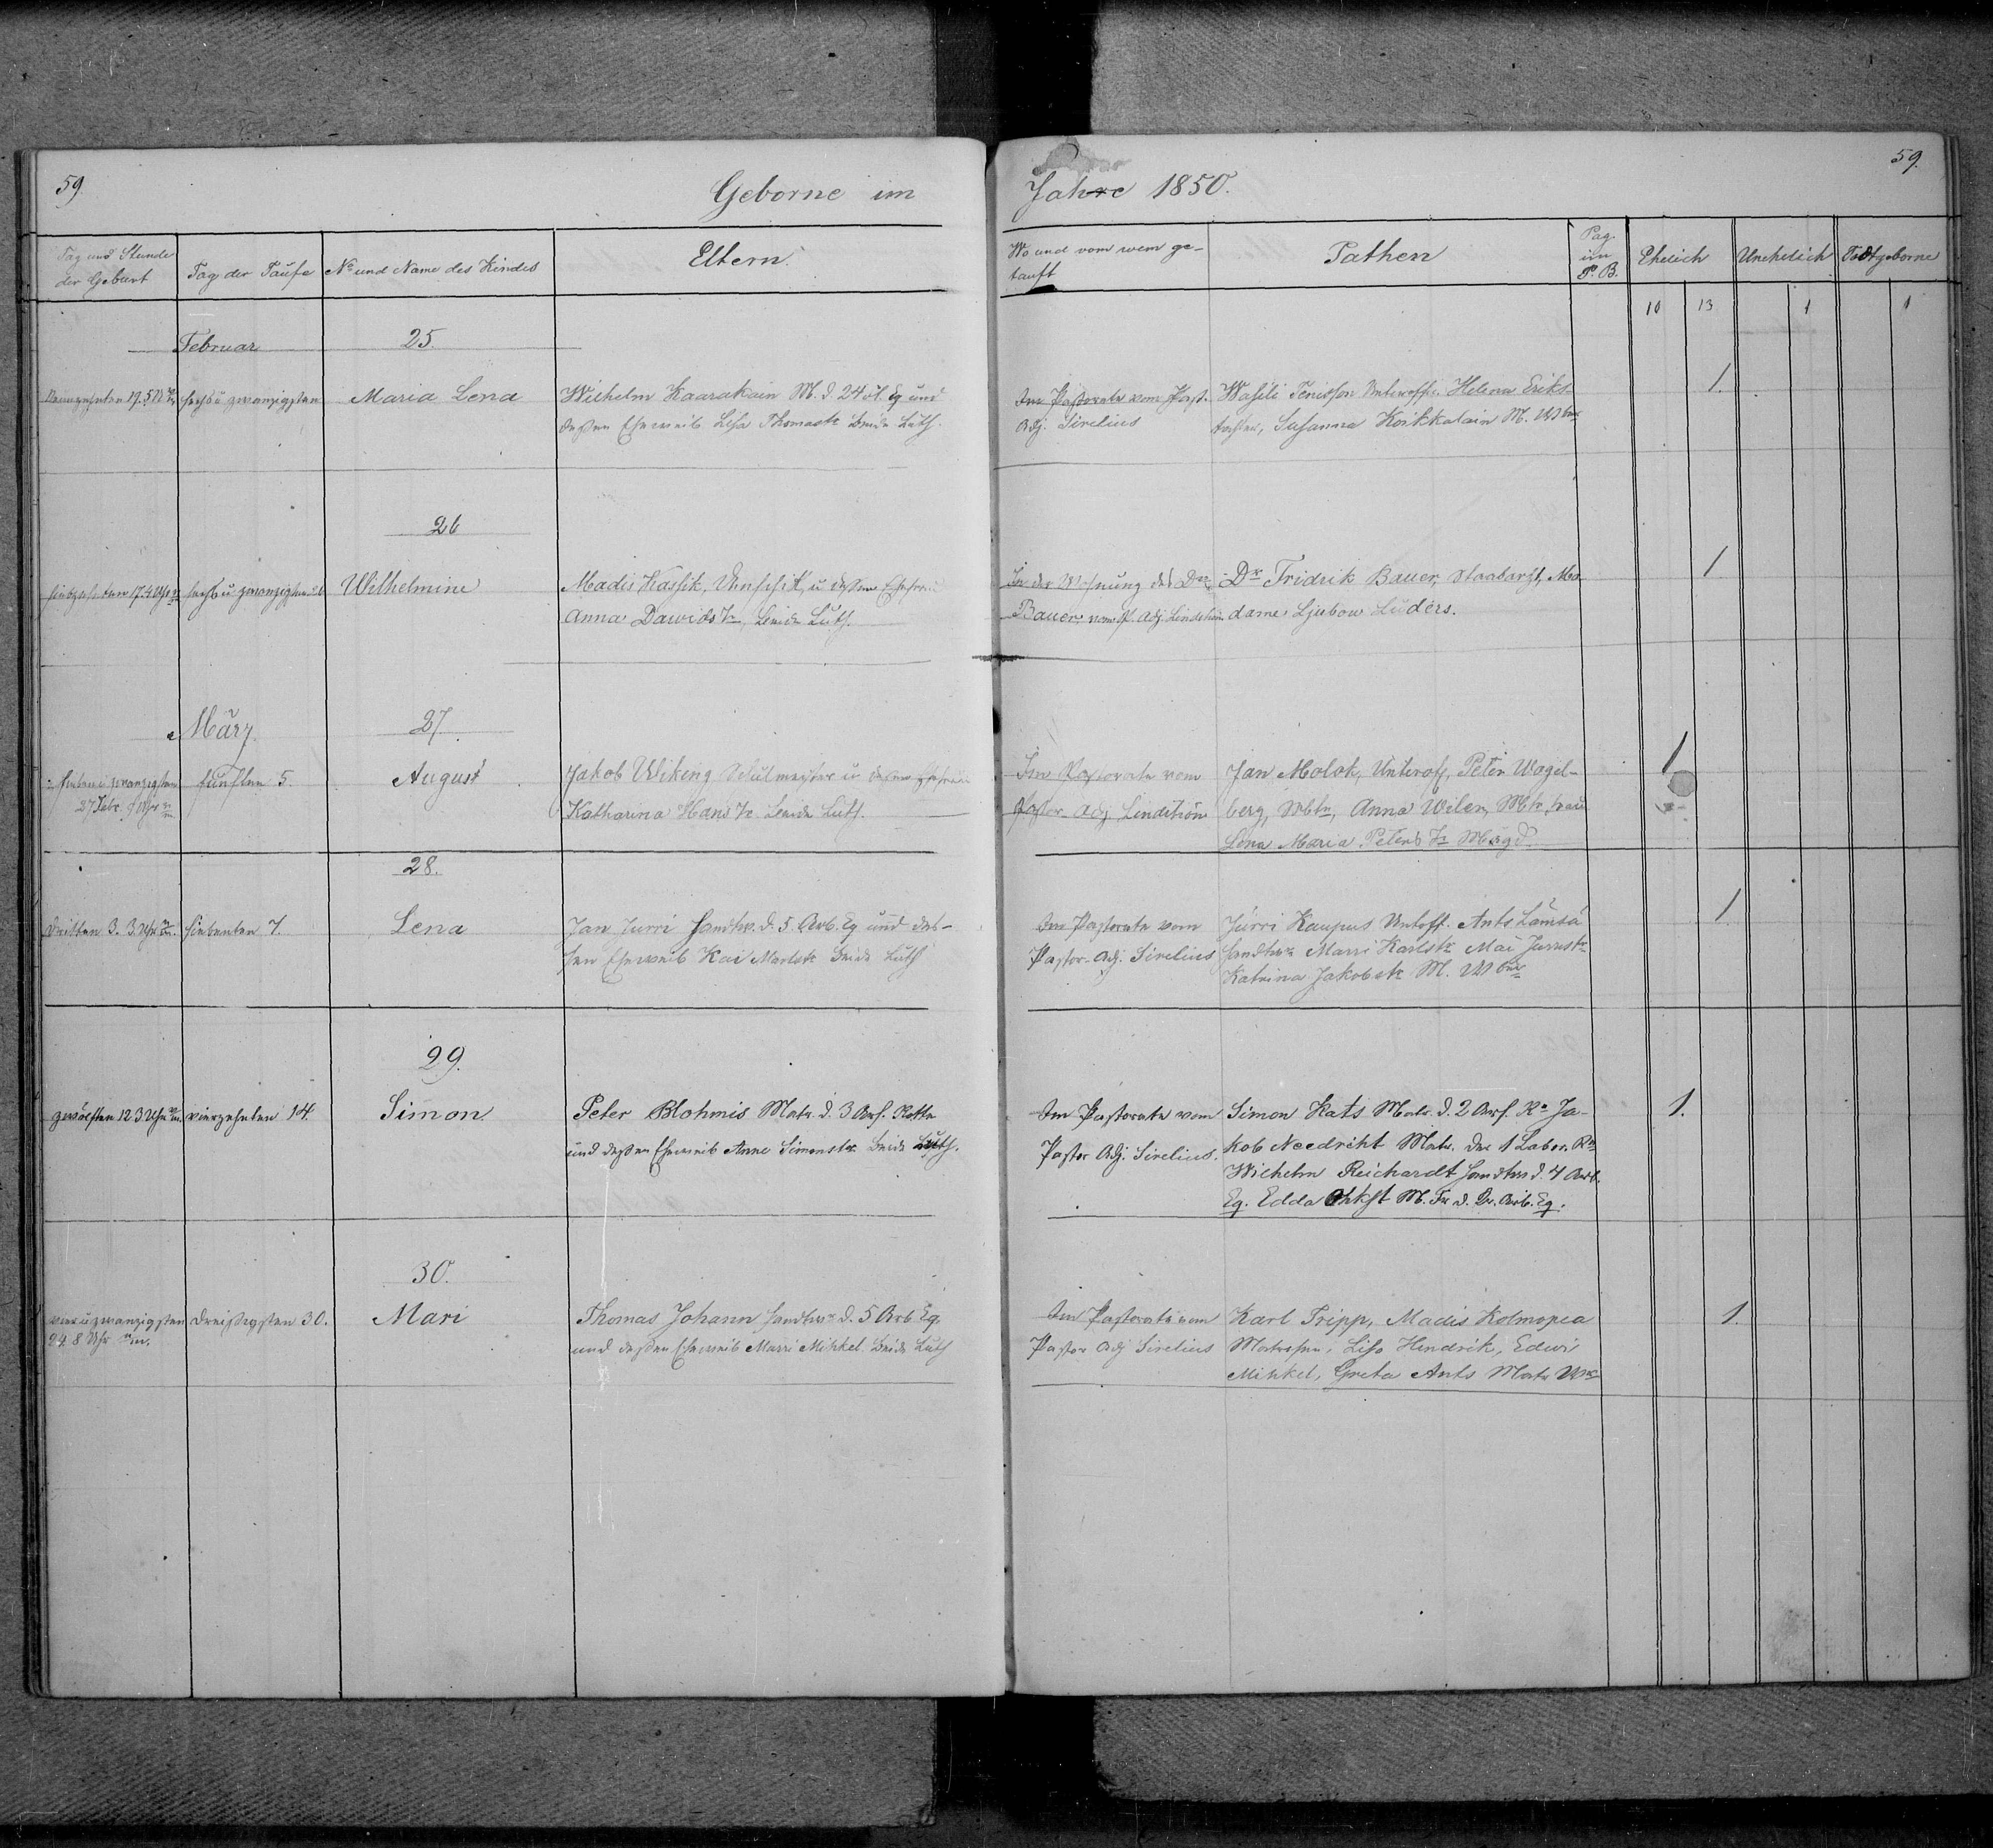 59.
Geborne im
Jahre 1850.
59.
Tag und Stunde
der Geburt
Tag der Taufe
No und Name des Kindes
Eltern.
Wo und vom wem ge-
tauft
Pathen
Pag.
im
P. B.
Ehelich
Unehelich
Todtgeborne
10 13 1 1
Februar
25.
sechs u zwanzigsten
Maria Lena
Wilhelm Kaarakain M. d. 24 Eq und
dessen Eheweib Lisa Thomastr beide Luth.
Im Pastorate vom Past.
Adj. Sirelius
Wasili Tenisson Unteroff. Helena Eriks-
tochter, Susanna Koikkalain M. Wber
1.
26
17. 4 Uhr
sechs u zwanzigsten 26
Wilhelmine
Madis Kassik, u dessen Ehefrau
Anna Dawids Tr, beide Luth.
In der Wohnung des Drs
Bauer, vom P. Adj. Lindström
Dr Fridrik Bauer, Staabarzt, Ma-
dame Ljubow Lüders.
1
März.
27.
sieben u zwanzigsten
27 Febr.
fünften 5.
August
Jakob Wiking Schulmeister u dessen Ehefrau
Katharina Hans Tr. beide Luth.
Im Pastorate vom
Pastor Adj Lindström
Jan Molok, Unteroff, Peter Wagel-
berg, Mtr, Anna Wilen, Mtr frau
Lena Maria Peters Tr Magd.
1
28.
Dritten 3. 3. Uhr
siebenten 7.
Lena
Jan Jurri Handw. d. 5. Arb. Eq und des-
sen Eheweib Kai Martstr beide Luth
Im Pastorate vom
Pastor-Adj. Sirelius
Jürri Kaupus Untoff. Ants Lämsä
Handtw. Marri Karlstr Mai Jurrestr
Katrina Jakobstr M. Wber
1
29.
zwölften 12 3 Uhr
vierzehnten 14.
Simon
Peter Blohmis Matr. d. 3 Arf. Rotte
und dessen Eheweib Anne Simonstr. beide Luth.
Im Pastorate vom
Pastor Adj. Sirelius.
Simon Kats Matr. d. 2 Arf. Ro Ja-
kob Needrikt Matr. der 1 Labor. Ro
Wilhelm Reichardt Handtw d. 4 Arb.
Eq. Edda M. Fr d. Arb. Eq.
1.
30.
vier u zwanzigsten
24 8 Uhr
dreißigsten 30.
Mari
Thomas Johann Handtw. d. 5 Arb. Eq.
und dessen Eheweib Marri Mihkel. beide Luth
Im Pastorate vom
Pastor Adj Sirelius
Karl Tripp, Madis Kolmopea
Matrosen, Liso Hendrik, Edwi
Mihkel, Greta Ants Matr Wr
1.